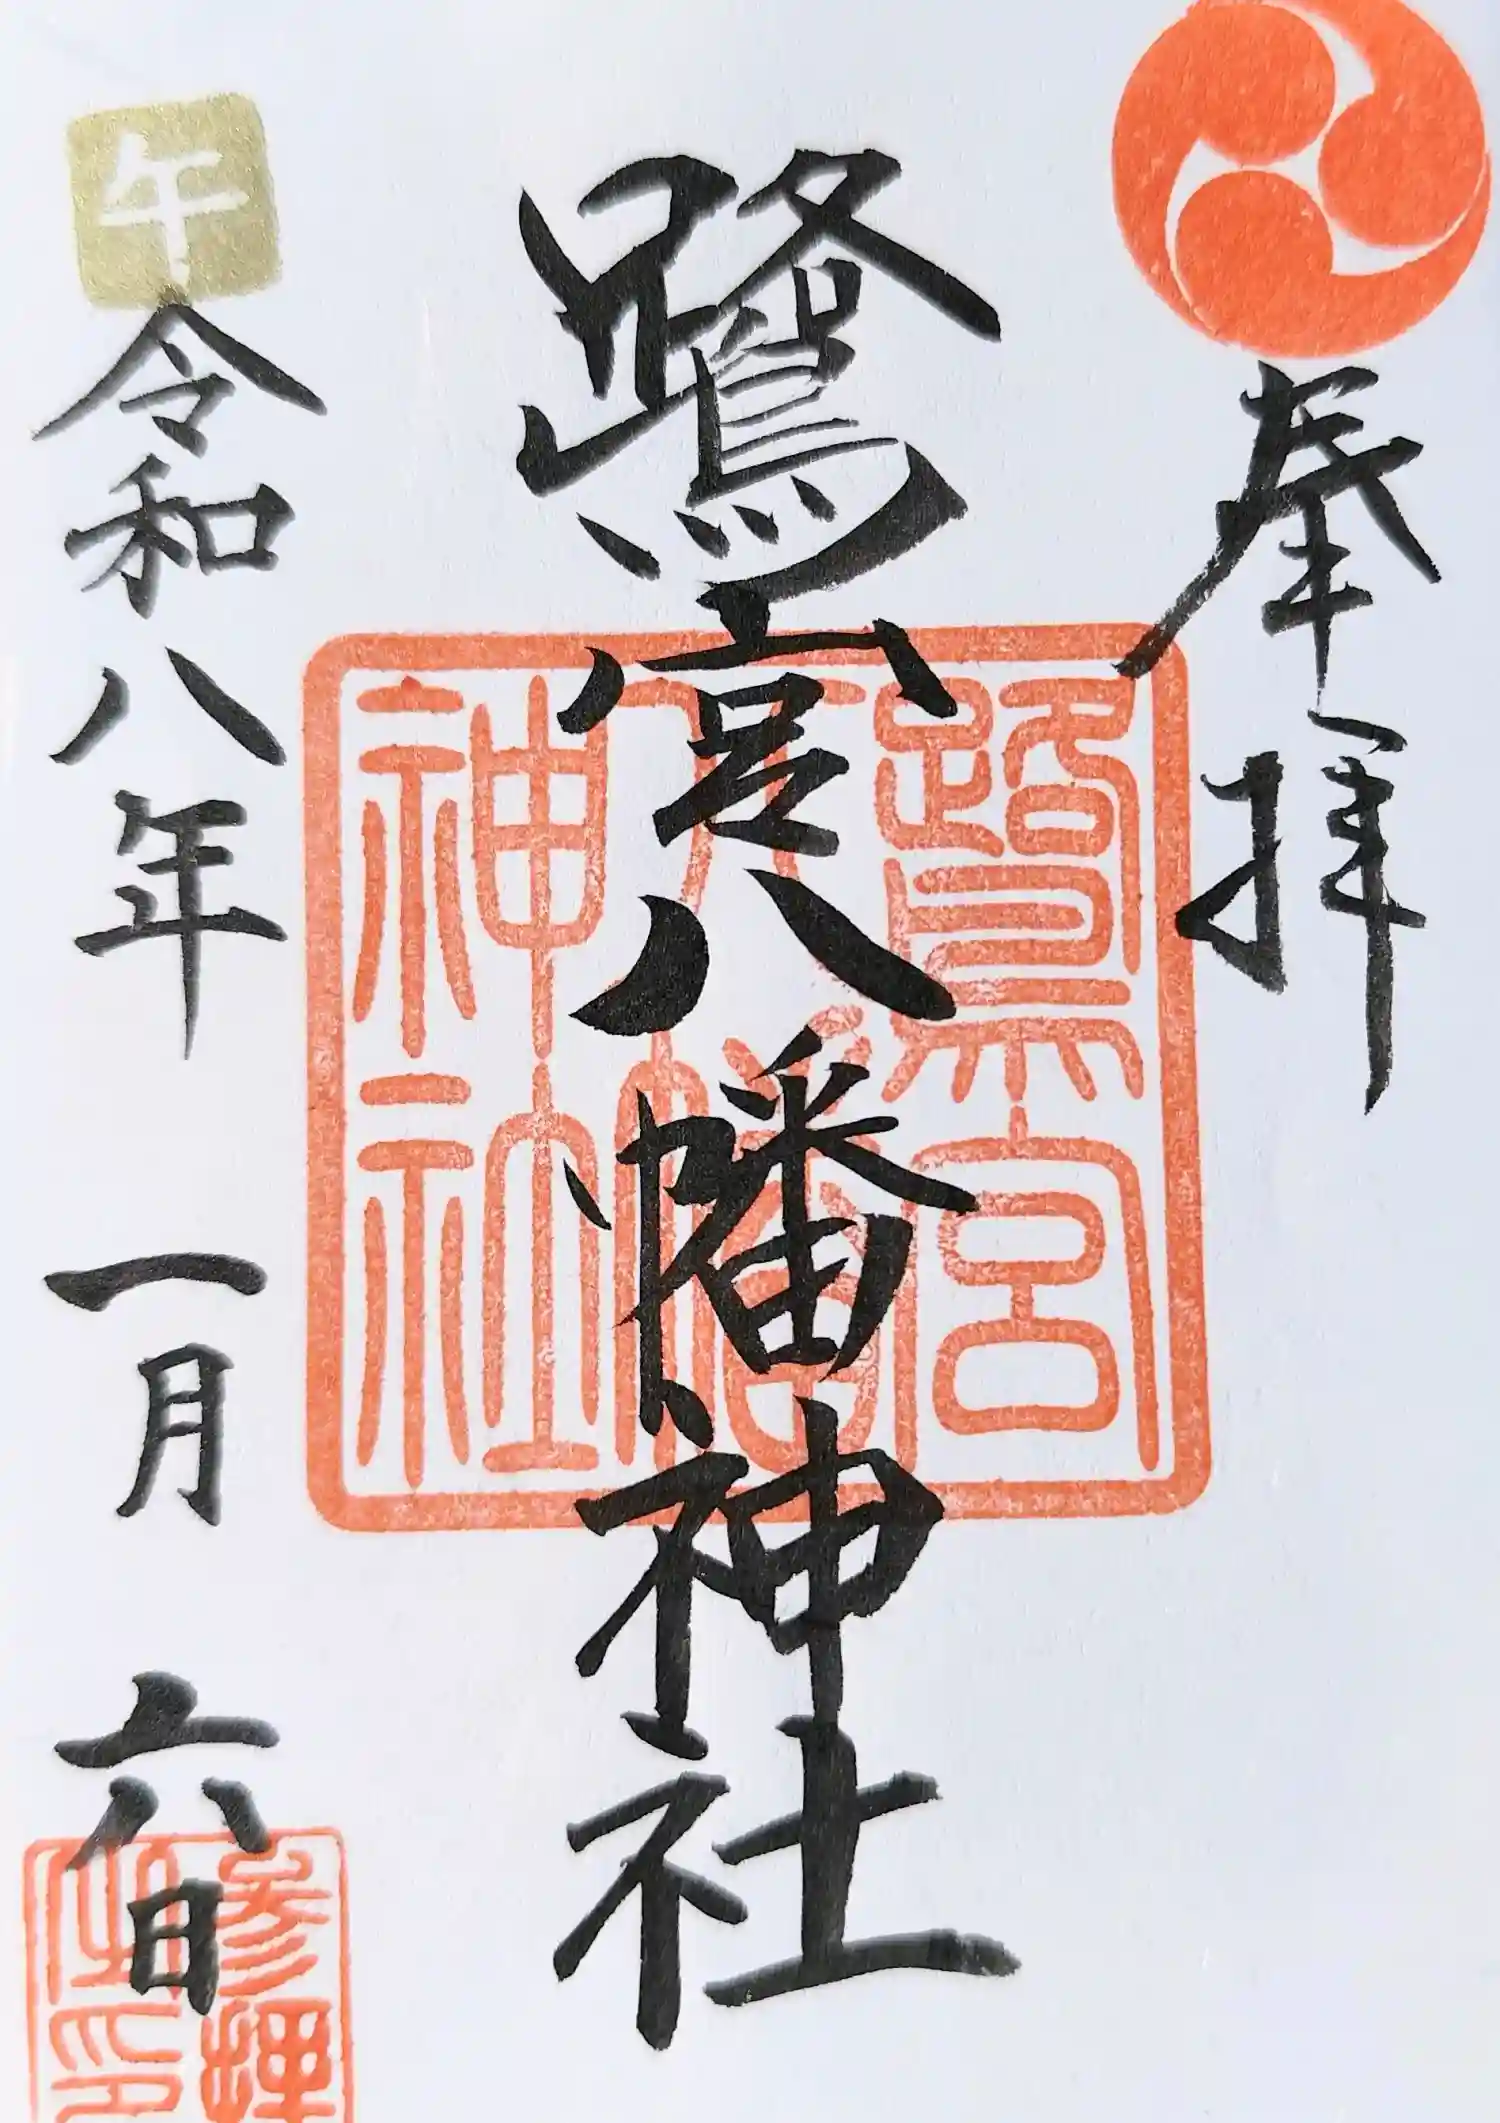 奉拝
鷺宮八幡神社
鷺宮
八幡
神社
午
令和八年 一月 六日
参拝